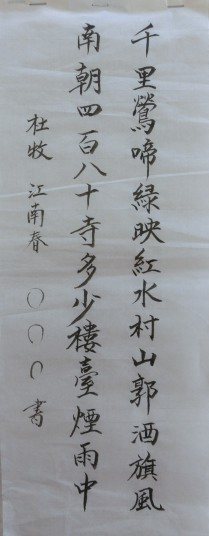 千里鶯啼緑映紅水村山郭酒旗風
南朝四百八十寺多少樓臺煙雨中
杜牧 江南春 〇〇〇書